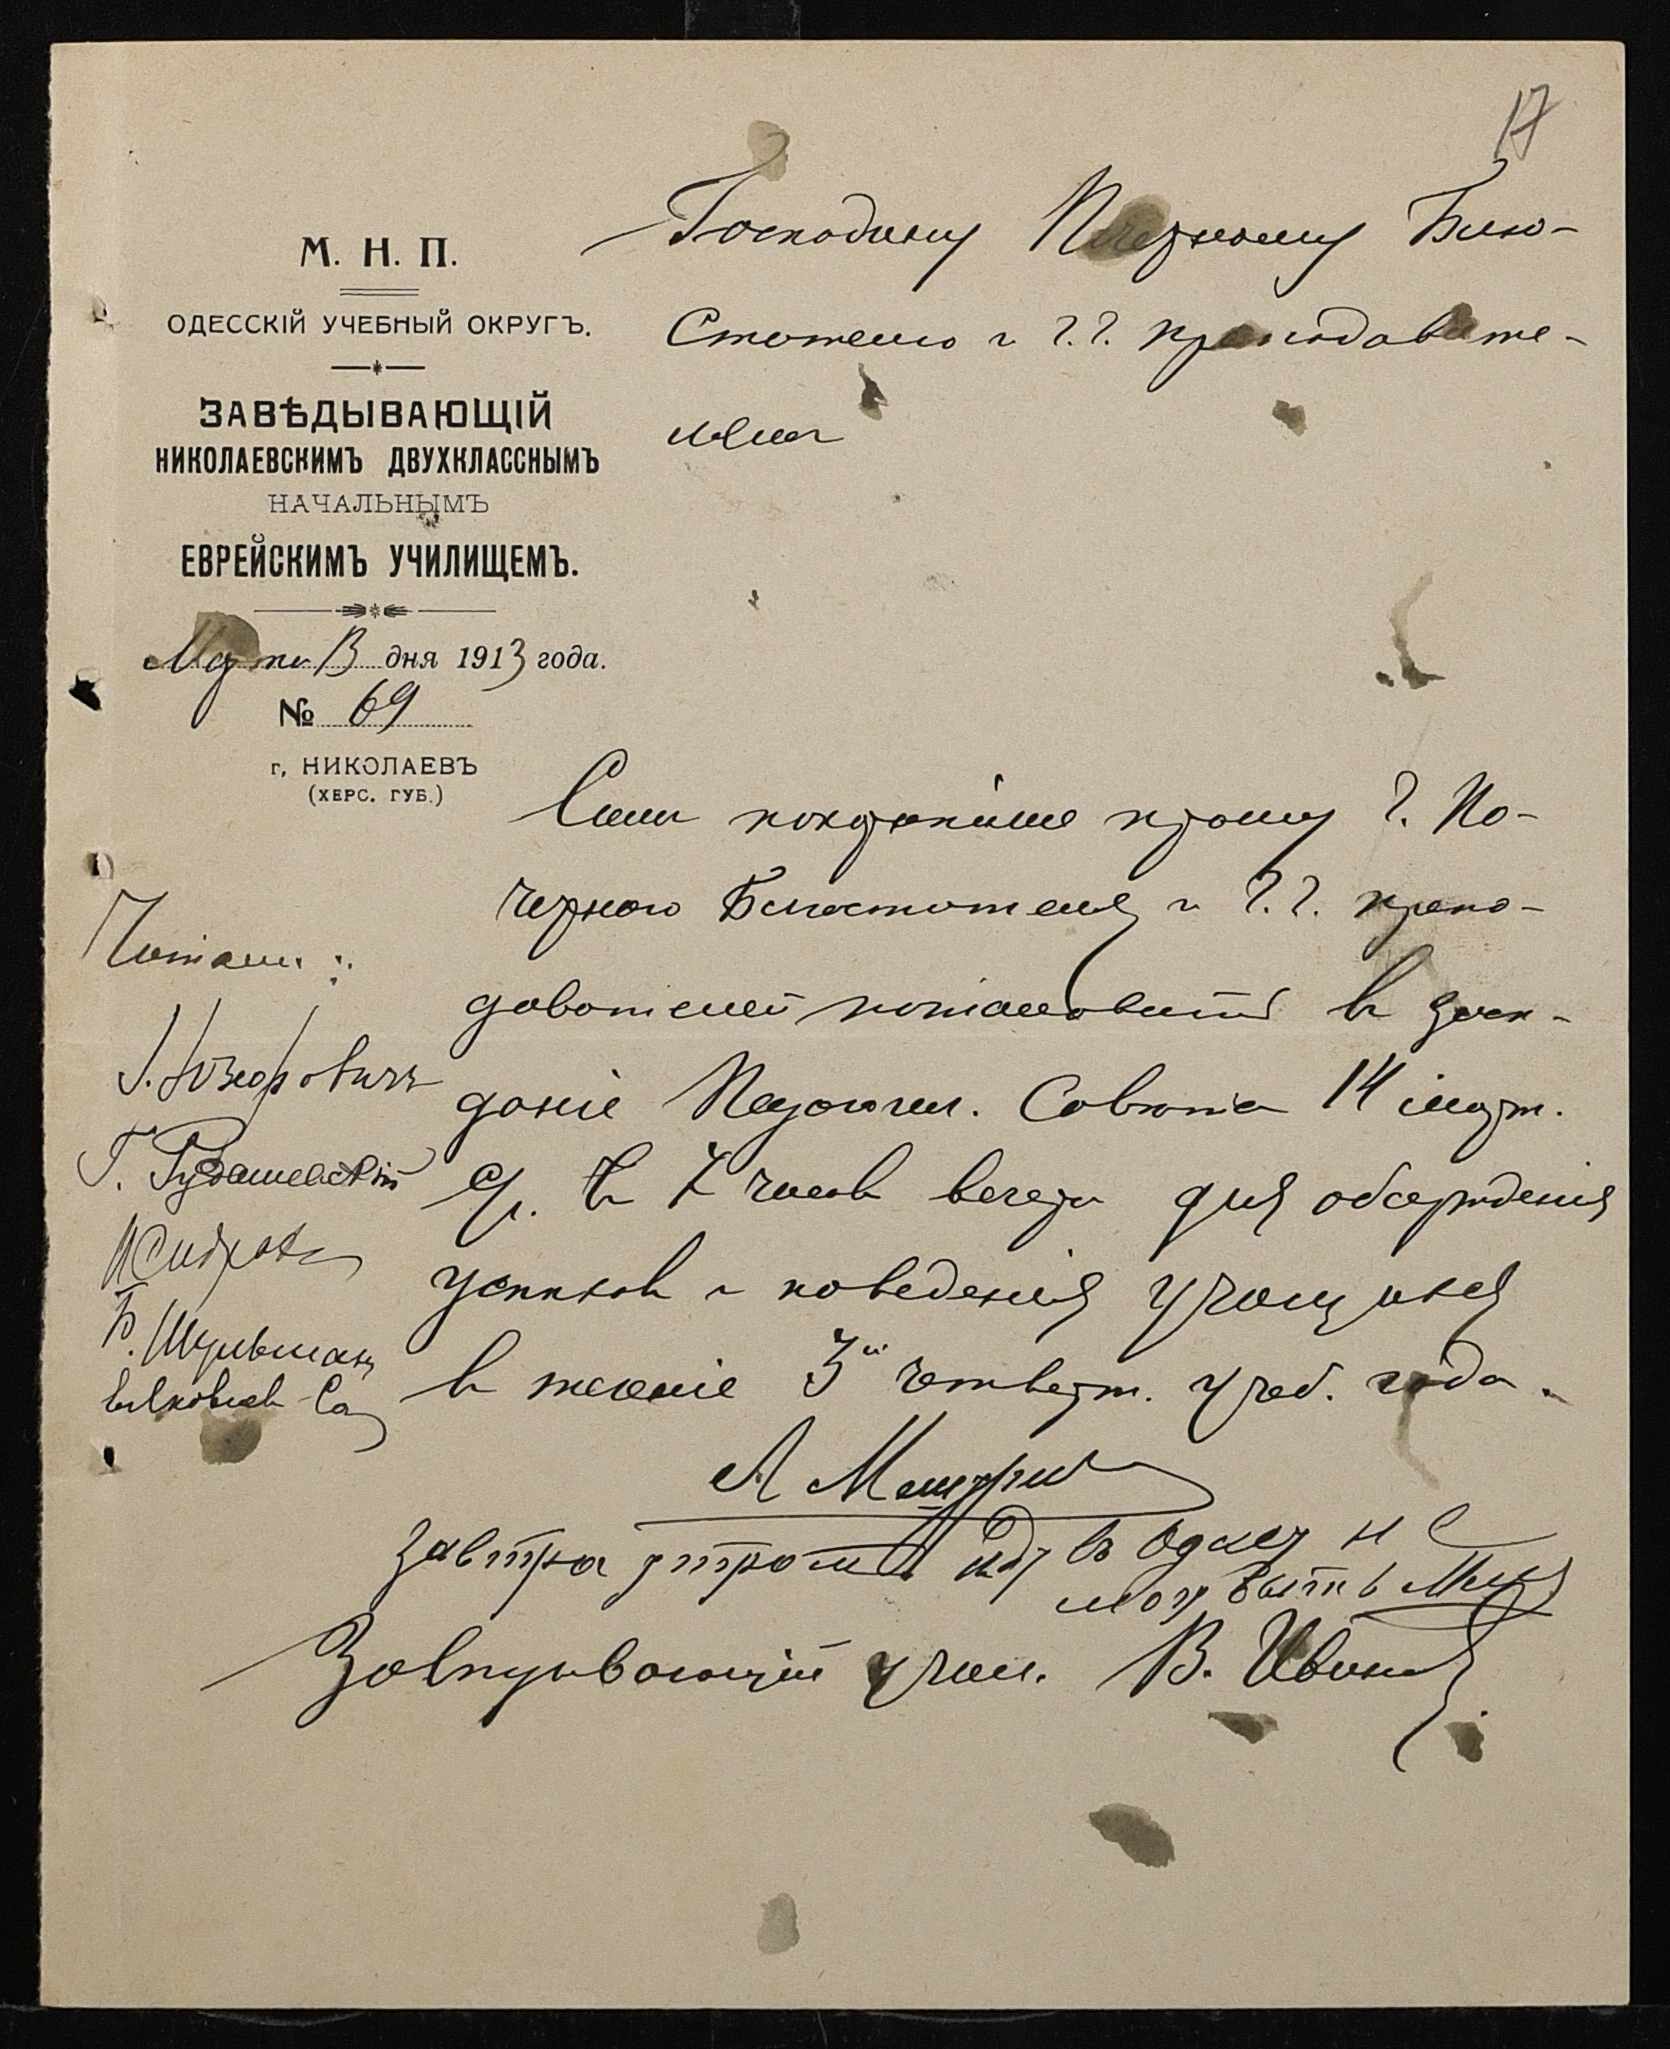 17
М. Н. П.
ОДЕССКІЙ УЧЕБНЫЙ ОКРУГЪ.
ЗАВѢДЫВАЮЩІЙ
НИКОЛАЕВСКИМЪ ДВУХКЛАССНЫМЪ
НАЧАЛЬНЫМЪ
ЕВРЕЙСКИМЪ УЧИЛИЩЕМЪ.
Марта 13 дня 1913 года.
№ 69
г. НИКОЛАЕВЪ
(ХЕРС. ГУБ.)
Господину Почетному Блю-
стителю и г.г. преподавате-
лямъ
Симъ покорнѣйше прошу г. По-
четнаго Блюстителя и г.г. препо-
давателей пожаловать въ засѣ-
даніе Педагогич. Совѣта 14 марта
с/г. въ 7 часовъ вечера для обсужденія
успѣховъ и поведенія учащихся
въ теченіе 3й четверт. учеб. года.
Читали:
Г. Рудашевскій
И Сидров
Б. Шульман
завтра утромъ иду въ Одессу не
могу быть
Завѣдывающій учил. В.